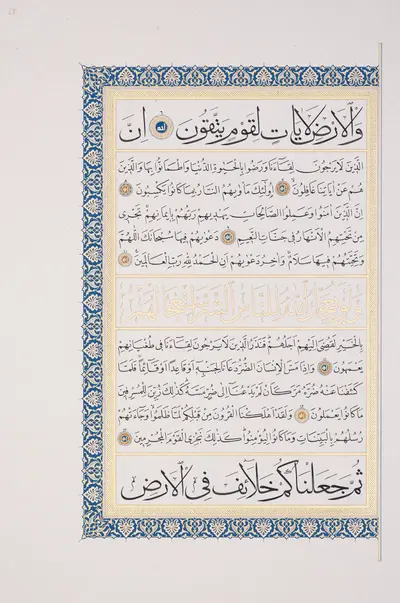 وَالْاَرْضِ لَاٰيَاتٍ لِقَوْمٍ يَتَّقُونَ اِنَّ
الَّذِينَ لَا يَرْجُونَ لِقَاءَنَا وَرَضُوا بِالْحَيٰوةِ الدُّنْيَا وَاطْمَاَنُّوا بِهَا وَالَّذِينَ
هُمْ عَنْ اٰيَاتِنَا غَافِلُونَ اُولٰئِكَ مَاْوٰيهُمُ النَّارُ بِمَا كَانُوا يَكْسِبُونَ
اِنَّ الَّذِينَ اٰمَنُوا وَعَمِلُوا الصَّالِحَاتِ يَهْدِيهِمْ رَبُّهُمْ بِاِيمَانِهِمْ تَجْرِى
مِنْ تَحْتِهِمُ الْاَنْهَارُ فِى جَنَّاتِ النَّعِيمِ دَعْوٰيهُمْ فِيهَا سُبْحَانَكَ اللّٰهُمَّ
وَتَحِيَّتُهُمْ فِيهَا سَلَامٌ وَاٰخِرُ دَعْوٰيهُمْ اَنِ الْحَمْدُ لِلّٰهِ رَبِّ الْعَالَمِينَ
وَلَوْ يُعَجِّلُ اللّٰهُ لِلنَّاسِ الشَّرَّ اسْتِعْجَالَهُمْ
بِالْخَيْرِ لَقُضِىَ اِلَيْهِمْ اَجَلُهُمْ فَنَذَرُ الَّذِينَ لَا يَرْجُونَ لِقَاءَنَا فِى طُغْيَانِهِمْ
يَعْمَهُونَ وَاِذَا مَسَّ الْاِنْسَانَ الضُّرُّ دَعَانَا لِجَنْبِهِ اَوْ قَاعِدًا اَوْ قَائِمًا فَلَمَّا
كَشَفْنَا عَنْهُ ضُرَّهُ مَرَّ كَاَنْ لَمْ يَدْعُنَا اِلٰى ضُرٍّ مَسَّهُ كَذٰلِكَ زُيِّنَ لِلْمُسْرِفِينَ
مَا كَانُوا يَعْمَلُونَ وَلَقَدْ اَهْلَكْنَا الْقُرُونَ مِنْ قَبْلِكُمْ لَمَّا ظَلَمُوا وَجَاءَتْهُمْ
رُسُلُهُمْ بِالْبَيِّنَاتِ وَمَا كَانُوا لِيُؤْمِنُوا كَذٰلِكَ نَجْزِى الْقَوْمَ الْمُجْرِمِينَ
ثُمَّ جَعَلْنَاكُمْ خَلَائِفَ فِى الْاَرْضِ